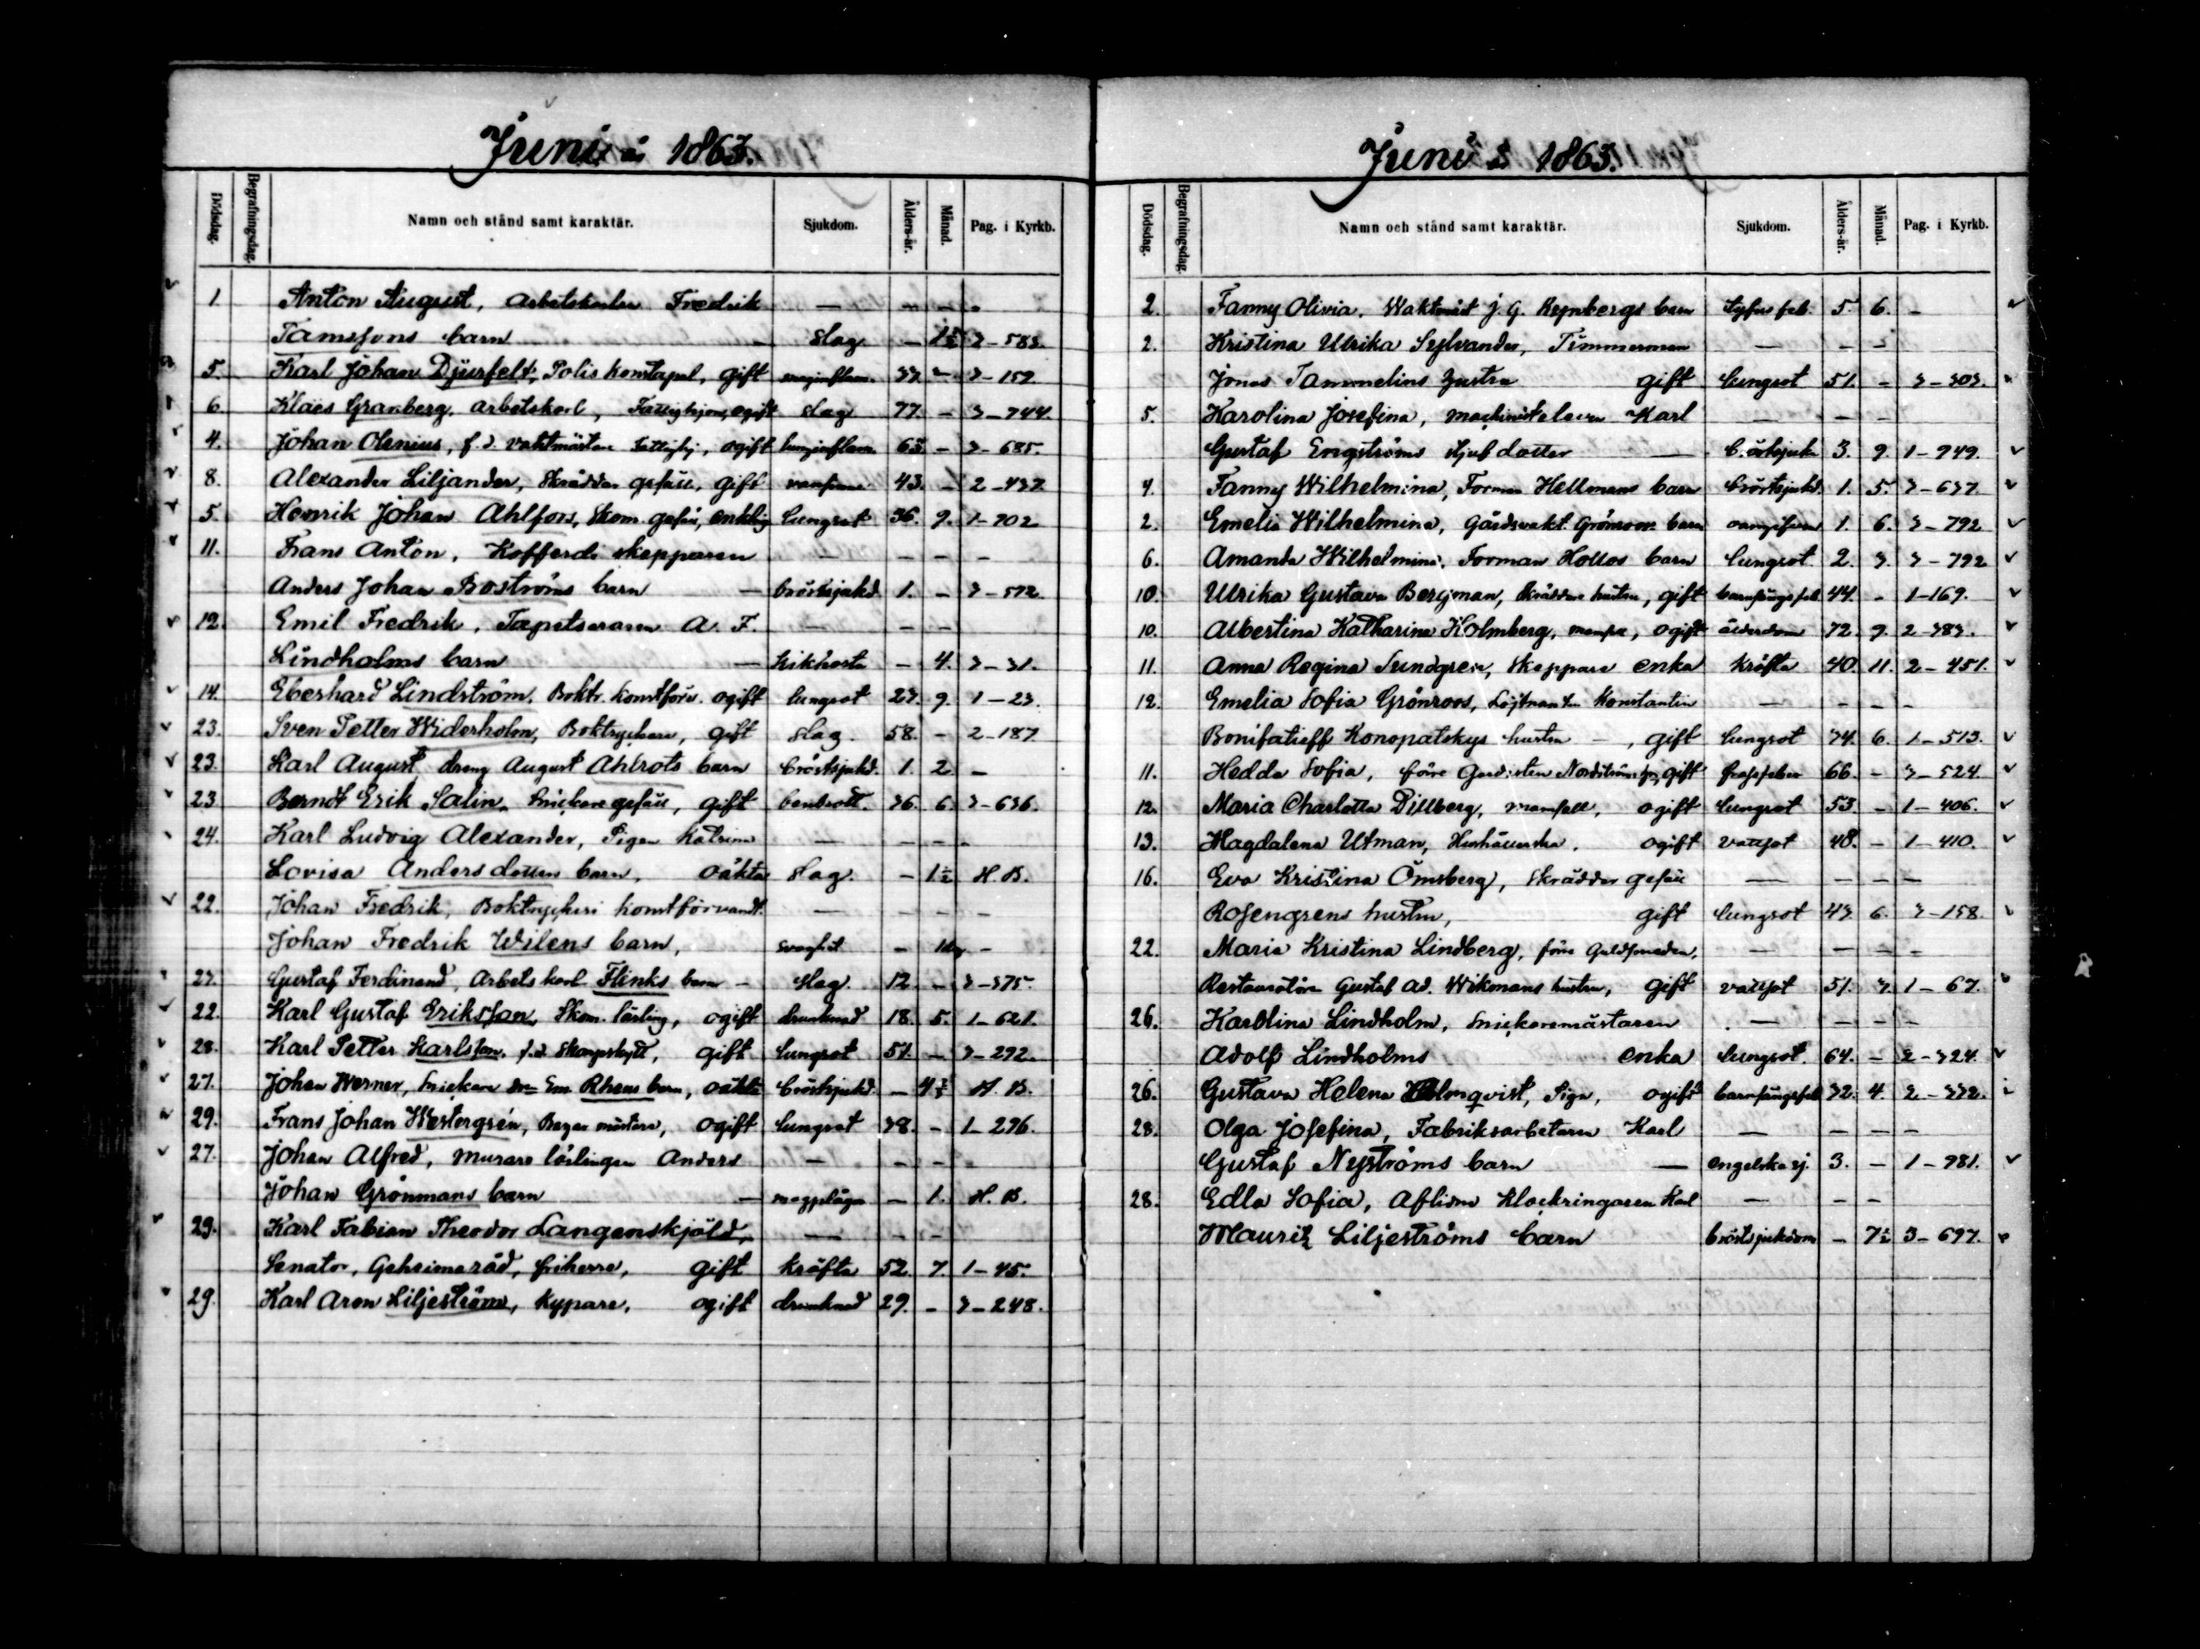 Juni år 1863.
Dödsdag. Begrafningsdag. Namn och stånd samt karaktär. Sjukdom. Ålders-år. Månad. Pag. i Kyrkb.
1. Anton August, Arbetskarlen Fredrik — — — -
Tamssons barn — Slag — 1½ 3-583.
5. Karl Johan Djurfelt, Polis konstapel, gift 33. — 3-159.
6. Klaes Granberg, Arbetskarl, Fattighjon, ogift slag 77 — 3-744.
4. Johan Olenius, f.d. vaktmästare ogift lunginflam. 63 — 3-685.
8. Alexander Liljander, Skräddar gesäll, gift 43. — 2-437.
5. Henrik Johan Ahlfors, Skom. gesäll, enkling lungsot 36. 9. 1-702
11. Frans Anton, Kofferdi skepparen — — — —
Anders Johan Boströms barn — bröstsjukd. 1. — 3-572.
12. Emil Fredrik, Tapetseraren A. F. — — —
Lindholms barn — kikhosta — 4. 3-31.
14. Eberhard Lindström, Boktr. konstförv. ogift lungsot 23. 9. 1-23.
23. Sven Petter Widerholm, Boktryckare, gift slag. 58. — 2-187
23. Karl August, dräng August Ahlrots barn bröstsjukd. 1. 2. —
23. Berndt Erik Salin, Snickare gesäll, gift benbrott. 36. 6. 3-636.
24. Karl Ludvig Alexander, Pigan Katrina — — — -
Lovisa Andersdotters barn, oäkta slag. — 1½ H. B.
22. Johan Fredrik, Boktryckeri konstförvandt. — — — —
Johan Fredrik Wilens barn, svaghet — -
27. Gustaf Ferdinand, Arbetskarl Flinks barn — slag 12. — 3-375
22. Karl Gustaf Eriksson, Skom. lärling, ogift drunknad 18. 5. 1-621.
28. Karl Petter Karlsson, f.d. Skarpskytt, gift lungsot 51. — 3-292.
27. Johan Werner, Snickare Rhens barn, oäkta bröstsjukd. — H. B.
29. Frans Johan Westergrén, Bagare mästare, ogift lungsot 38. — 1-296.
27. Johan Alfred, murare lärlingen Anders — — —
Johan Grönmans barn — magplåga — 1. H. B.
29. Karl Fabian Theodor Langenskjöld, — — —
Senator, Geheimeråd, friherre, gift kräfta 52. 7. 1-45.
29. Karl Aron Liljeström, Kypare, ogift drunknad 29. — 3-248.
Juni 1863.
Dödsdag. Begrafningsdag. Namn och stånd samt karaktär. Sjukdom. Ålders-år. Månad. Pag. i Kyrkb.
2. Fanny Olivia, Waktmäst J. G. Renbergs barn Tyfus feb. 5. 6. -
2. Kristina Ulrika Sylvander, Timmerman — — —
Jonas Tammelins hustru gift lungsot 51. — 3-303.
5. Karolina Josefina, machinist eleven Karl — — —
Gustaf Engströms styfdotter — bröstsjuk 3. 9. 1-949.
4. Fanny Wilhelmina, Forman Hellmans barn bröstsjukd. 1. 5. 3-637.
2. Emelia Wilhelmina, Gårdsvakt. Grönroos barn 1. 6. 3-792
6. Amanda Wilhelmina, Forman Hollos barn lungsot. 2. 3. 3-792
10. Ulrika Gustava Bergman, skräddare hustru, gift barnsängsfeb. 44. - 1-169.
10. Albertina Katharina Holmberg, mamsell, ogift ålderdom 72. 9. 2-383.
11. Anna Regina Sundgren, Skeppare enka kräfta 40. 11. 2-451.
12. Emelia Sofia Grönroos, Löjtnanten Konstantin — — — —
Bonifatieff Konopatskys hustru —, gift lungsot 34. 6. 1-513.
11. Hedda Sofia, förre Gardisten Nordströms gift frossfeber 66. — 3-524.
12. Maria Charlotta Dillberg, mamsell, ogift lungsot 53. — 1-406.
13. Magdalena Utman, Hushållerska, ogift vattsot 48. — 1-410.
16. Eva Kristina Ömsberg, Skräddar gesäll — — — —
Rosengrens hustru, gift lungsot 43. 6. 3-158.
22. Maria Kristina Lindberg, förre Guldsmeden, — — — —
Restauratören Gustaf Ad. Wikmans hustru, gift vattsot 51. 3. 1-67.
26. Karolina Lindholm, Snickaremästaren — — — —
Adolf Lindholms enka lungsot. 64. — 2-324.
26. Gustava Helena Holmqvist, Piga, ogift barnsängsfeb 32. 4. 2-372.
28. Olga Josefina, Fabriksarbetaren Karl — — — —
Gustaf Nyströms barn — engelska sj. 3. — 1-981.
28. Edla Sofia, Aflidne Klockringaren Karl — — —
Mauritz Liljeströms barn bröstsjukdom — 7½ 3-697.